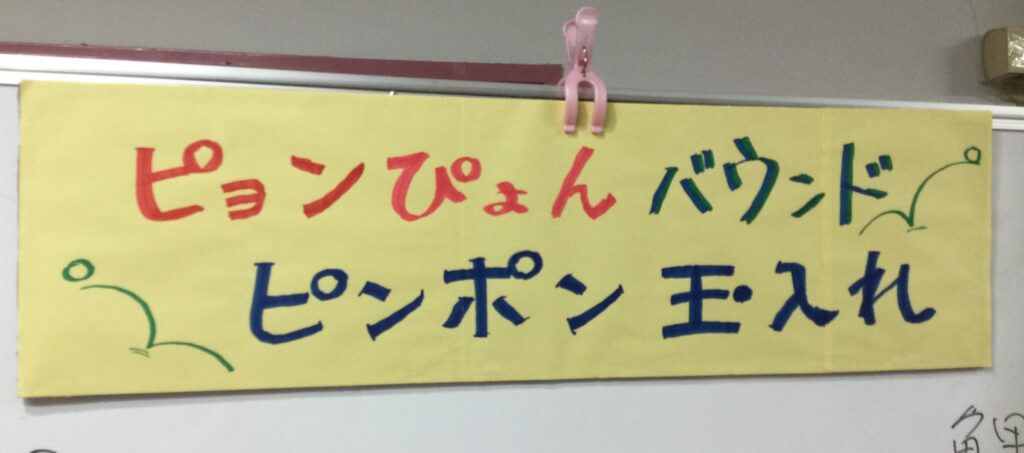 ピョンぴょんバウンド
ピンポン玉入れ